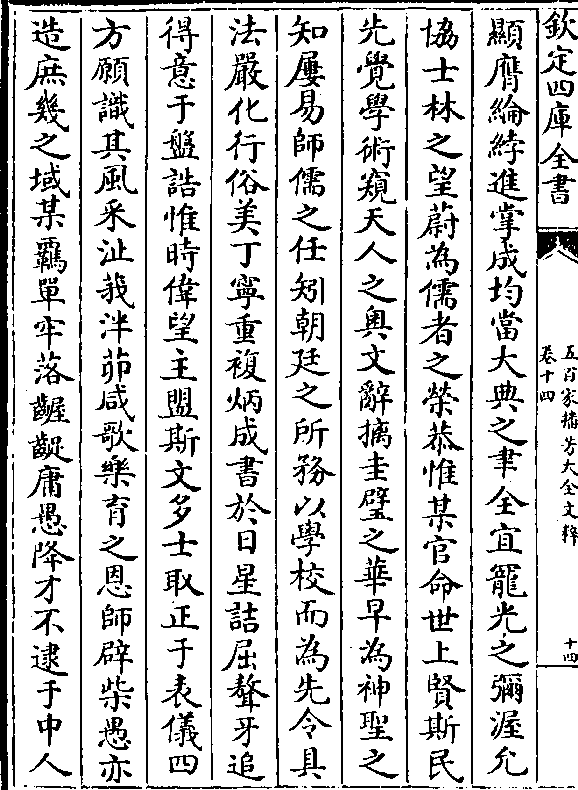 欽定四庫全書
五百家播芳大全文粹
卷十四
十四
顯膺綸綍進掌成均當大典之聿全宜寵光之彌渥允
協士林之望蔚為儒者之榮恭惟某官命世上賢斯民
先覺學術窺天人之奥文辭摛圭璧之華早為神聖之
知屢易師儒之任矧朝廷之所務以學校而為先令具
法嚴化行俗美丁寧重複炳成書於日星詰屈聱牙追
得意于盤誥惟時偉望主盟斯文多士取正于表儀四
方願識其風采沚莪泮茆咸歌樂育之恩師辟柴愚亦
造庶幾之域某羈單牢落齷齪庸愚降才不逮于中人